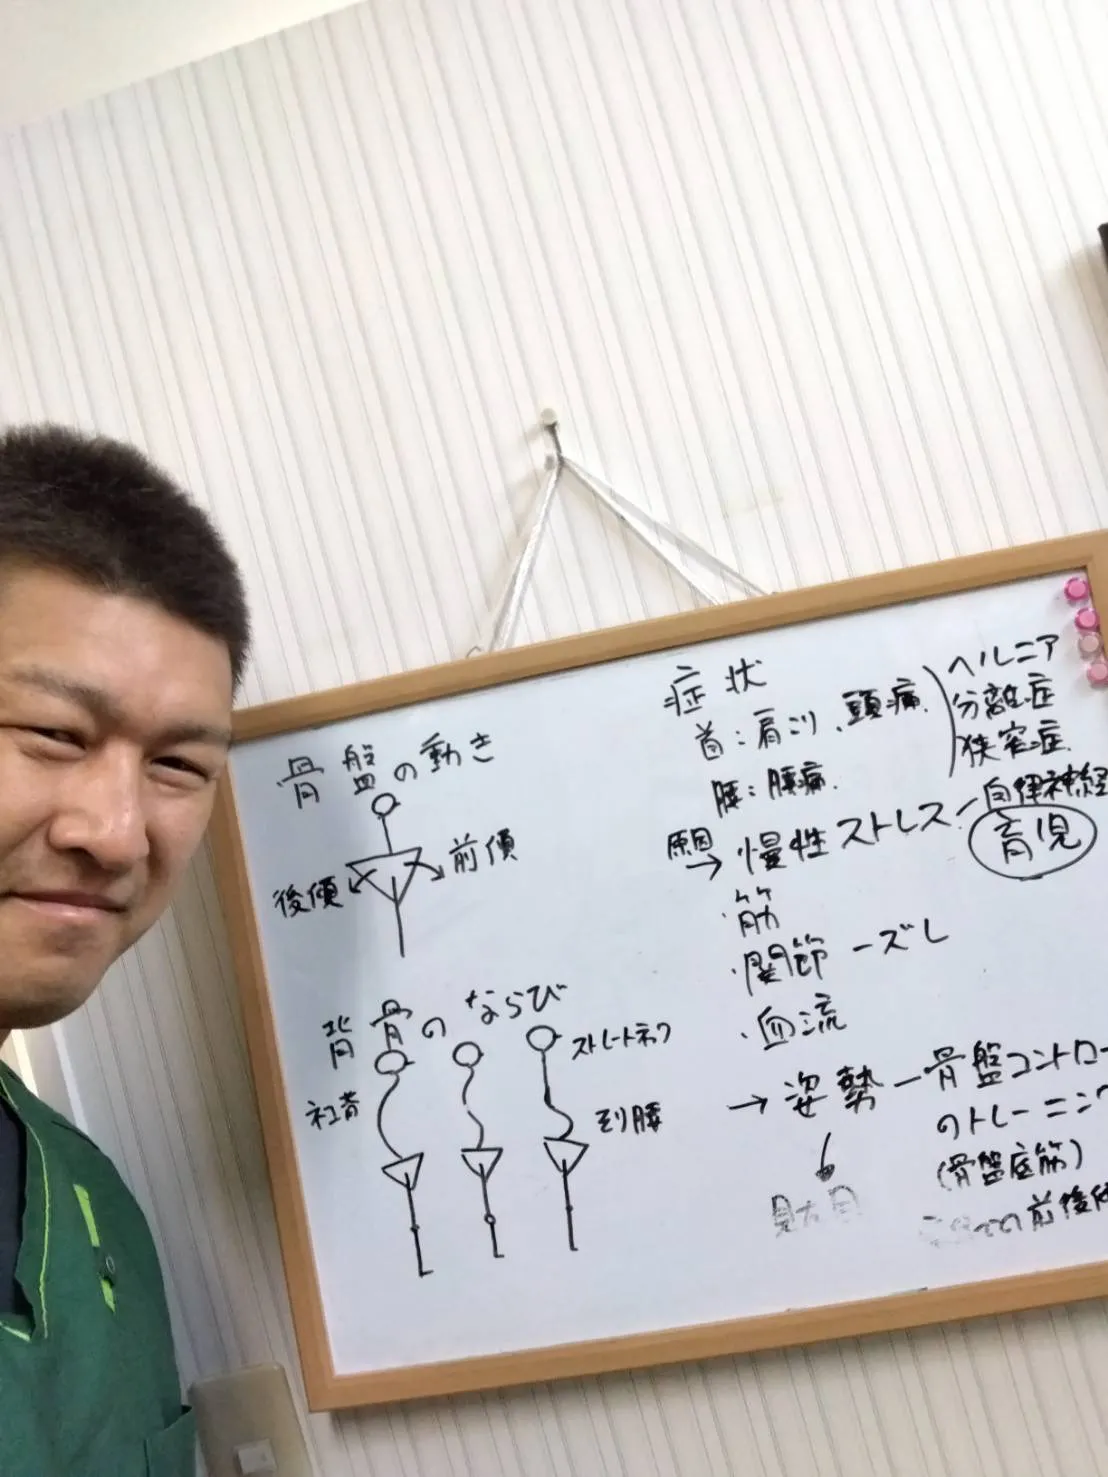 骨盤の動き
前傾
後傾
背骨のならび
ストレートネック
猫背
反り腰
症状
首:肩こり、頭痛
腰:腰痛
ヘルニア
分離症
狭窄症
原因
→慢性ストレス
自律神経
育児
・筋
・関節ーズレ
・血流
→姿勢ー骨盤コントロー
のトレーニング
(骨盤底筋)
見た目
前後